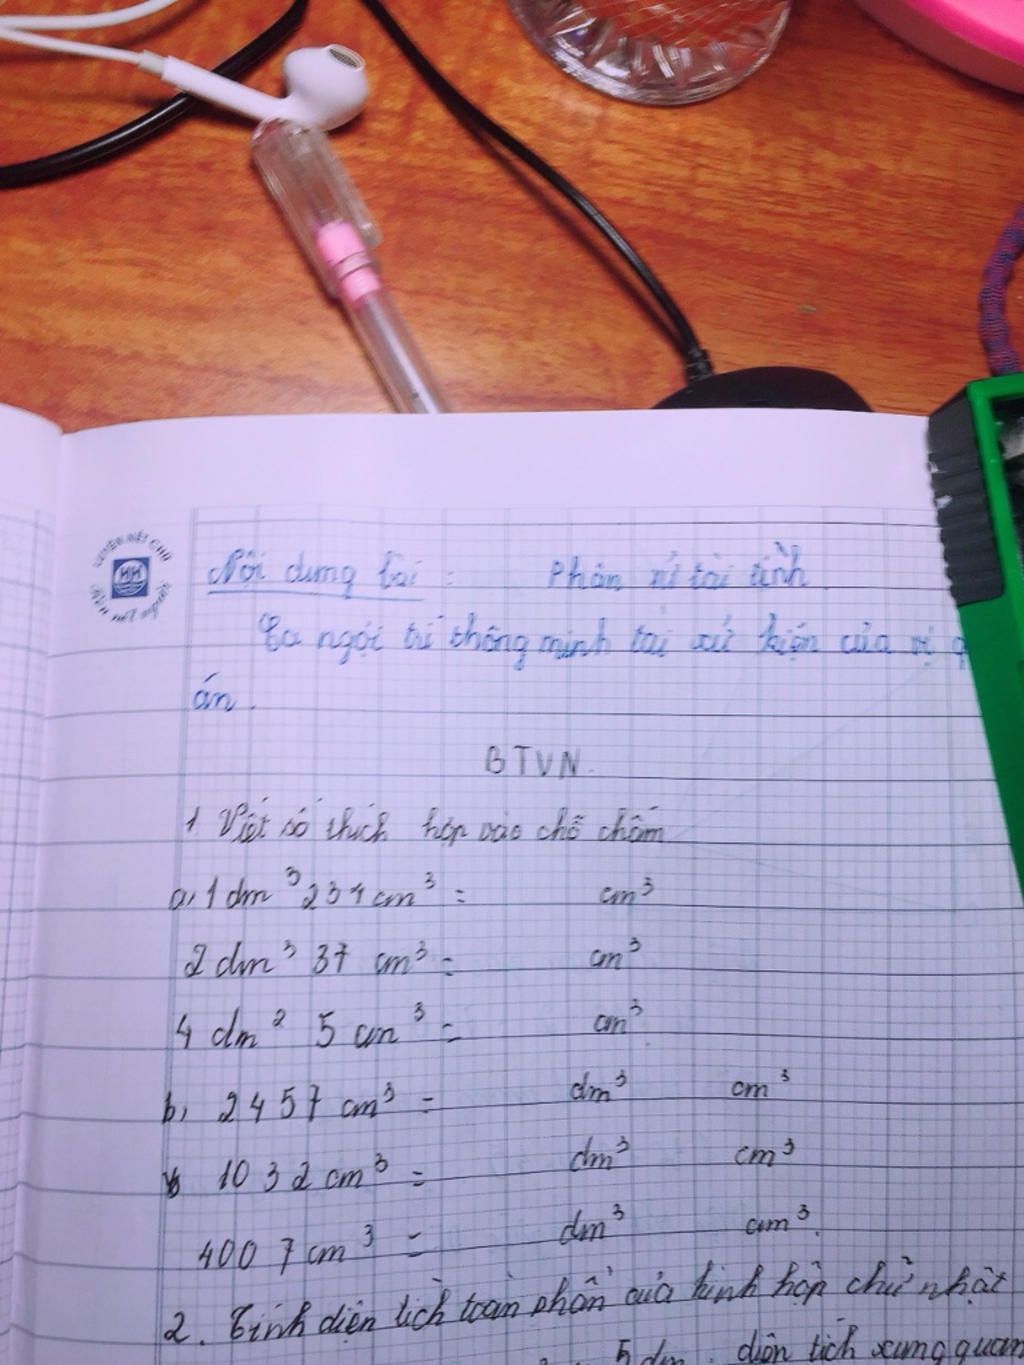 Nội dung bài : Phân xử tài tình
Ca ngợi trí thông minh tài xử kiện của vị q
án.
BTVN.
1. Viết số thích hợp vào chỗ chấm
a, 1 dm³ 234 cm³ = cm³
2 dm³ 37 cm³ = cm³
4 dm² 5 cm³ = cm³
b, 2457 cm³ = dm³ cm³
1032 cm³ = dm³ cm³
4007 cm³ = dm³ cm³.
2. Tính diện tích toàn phần của hình hộp chữ nhật
5 dm. diện tích xung quan